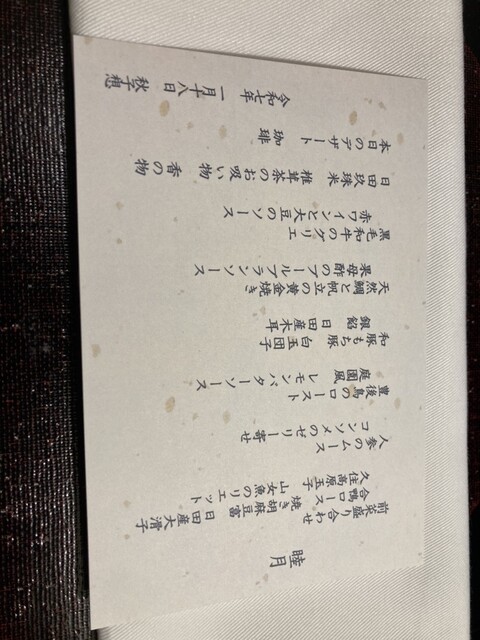 睦月
前菜盛り合わせ 日田産大滑子
合鴨ロース 焼き胡麻豆富
久住高原玉子 山女魚のリエット
人参のムース
コンソメのゼリー寄せ
豊後の鳥のロースト
庭園風 レモンバターソース
和豚もち豚 白玉団子
銀餡 日田産木耳
天然鯛と帆立の黄金焼き
果母の酢のブールブランソース
黒毛和牛のグリエ
赤ワインと大豆のソース
日田玖珠米 椎茸の茶のお吸い物 香の物
本日のデザート 珈琲
令和七年 一月十八日 秋子想